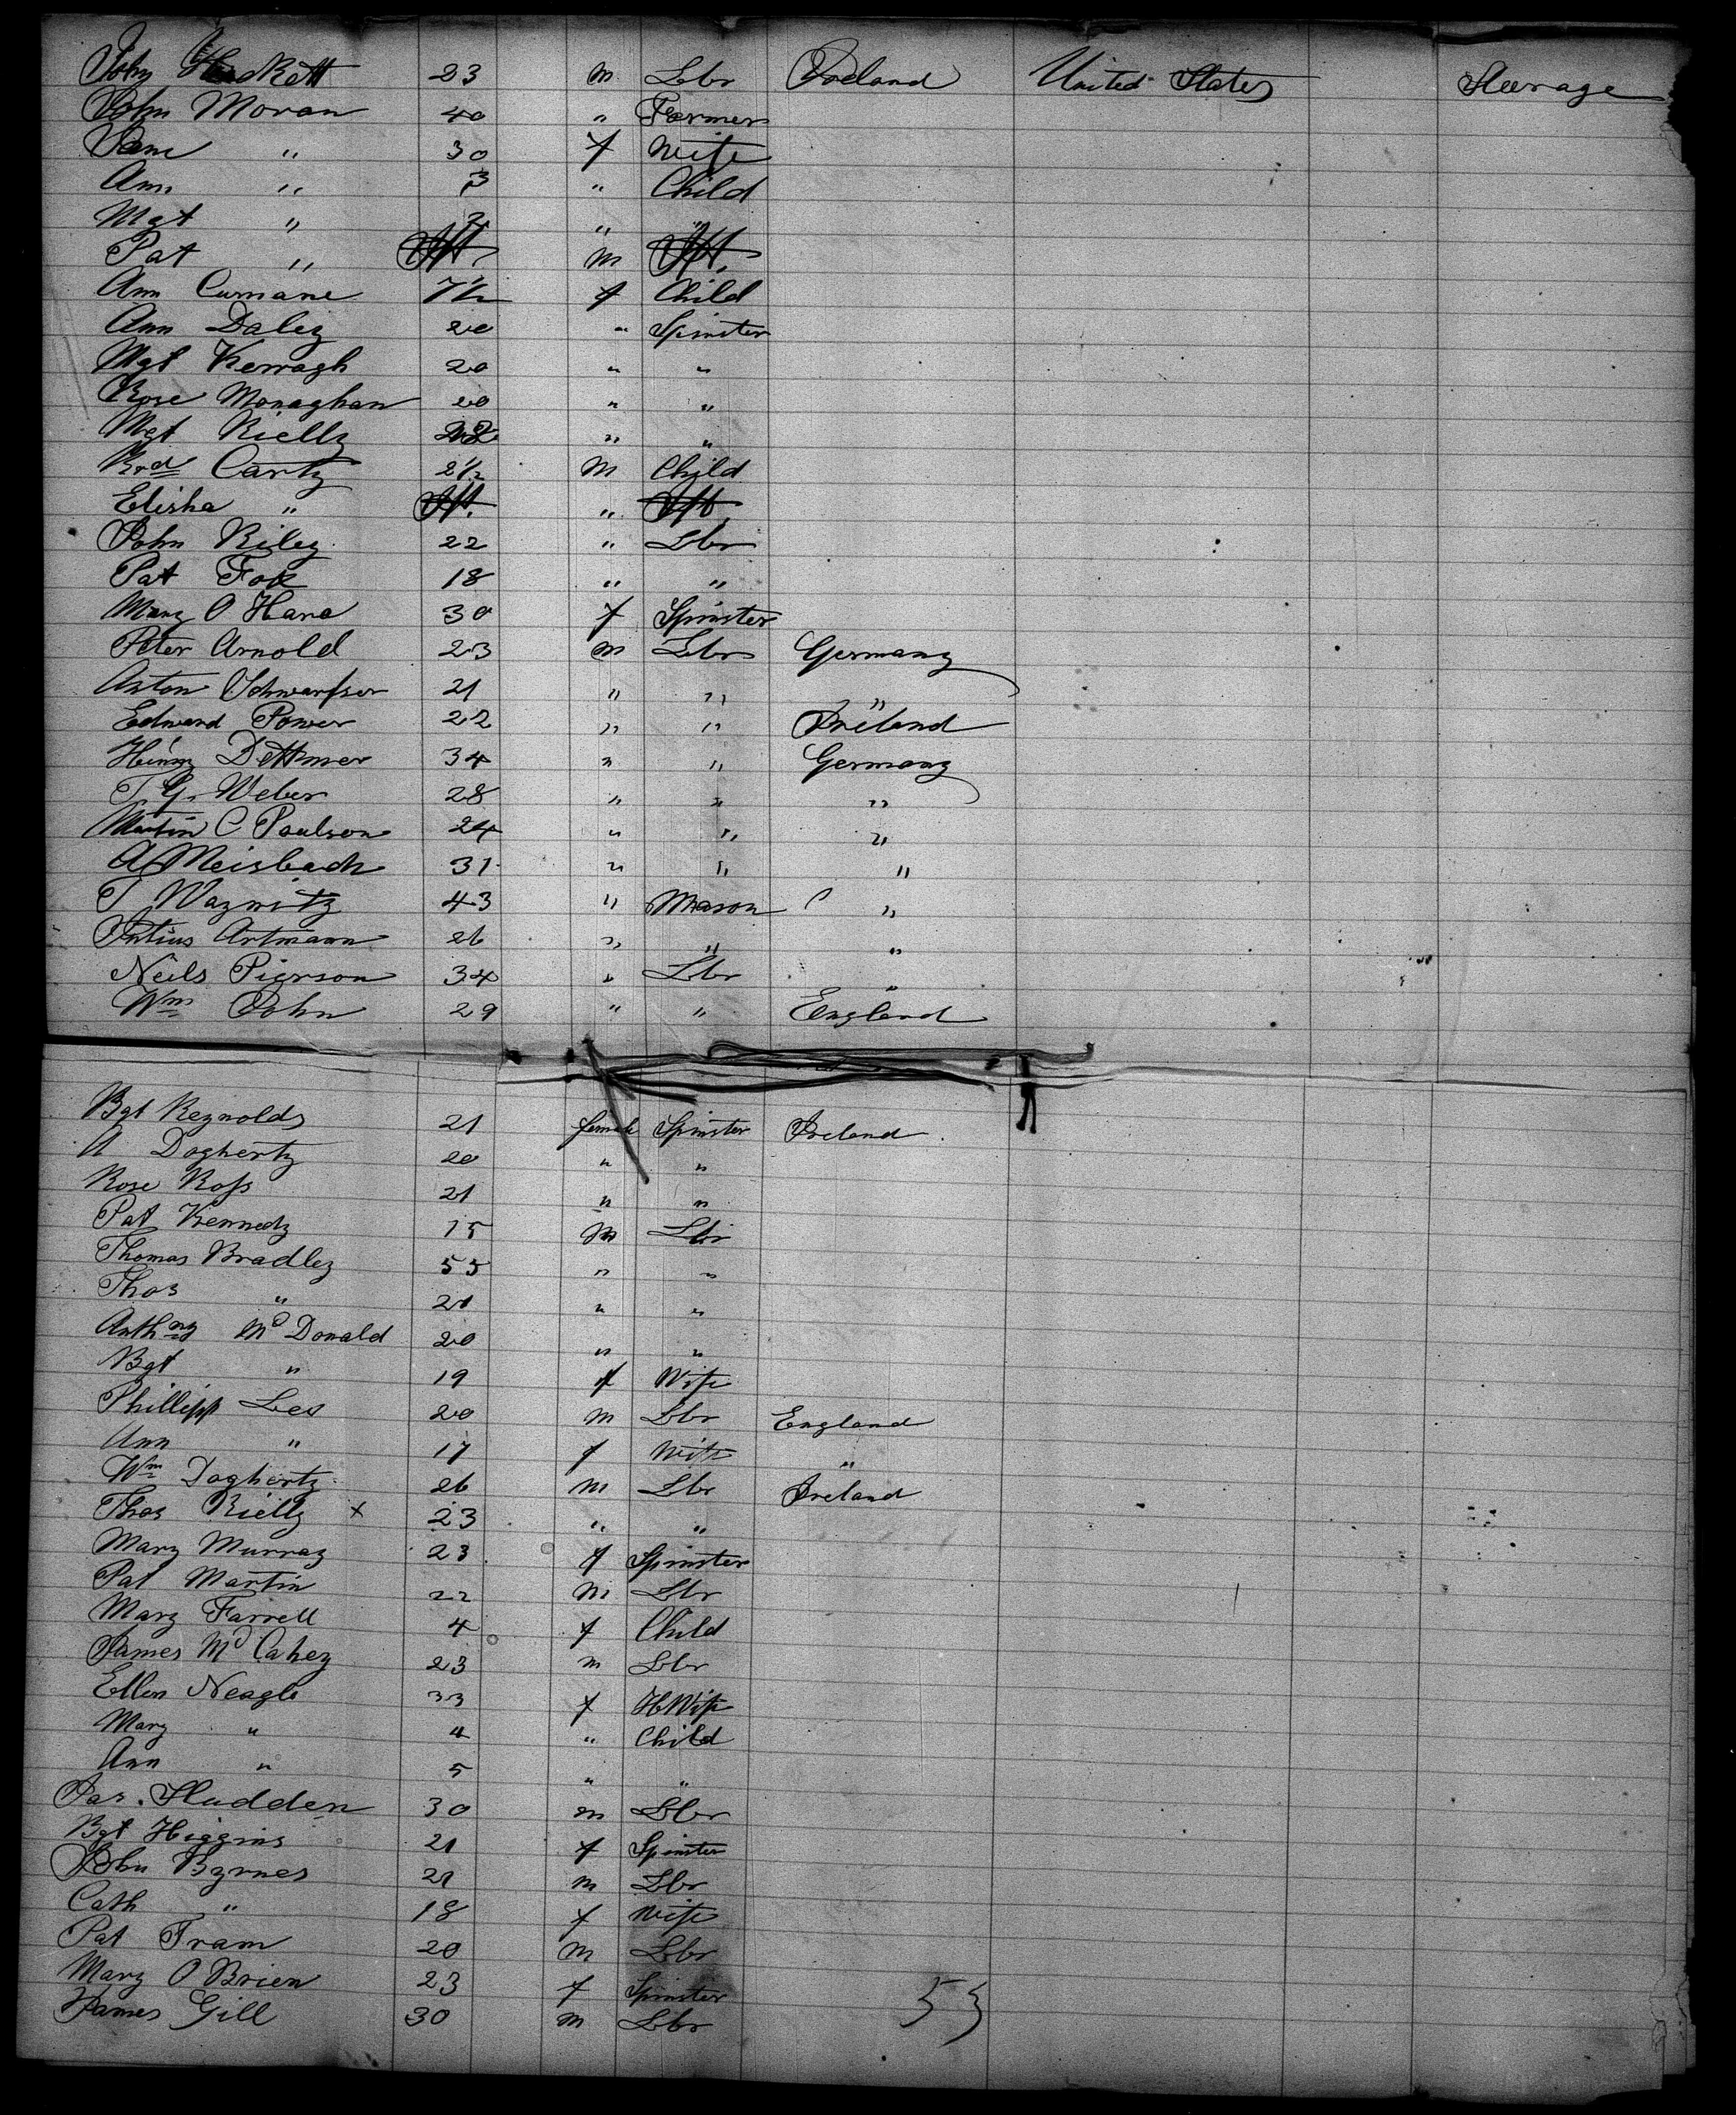 John Hackett 23 m Lbr Ireland United States Steerage
John Moran 40 " Farmer
Jane " 30 f Wife
Ann " 3 " Child
Mgt " 2 " "
Pat " Inft. m Inft.
Ann Curnane 7 1/2 f Child
Ann Daley 20 " Spinster
Mgt Kerragh 20 " "
Rose Monaghan 20 " "
Mgt Rielly " "
Brd Carty 2 1/2 m Child
Elisha " Inft. " Inft.
John Riley 22 " Lbr
Pat Fox 18 " "
Mary O Hara 30 f Spinster
Peter Arnold 23 m Lbr Germany
Anton 21 " " "
Edward Power 22 " " Ireland
Heinry Dettmer 34 " " Germany
T. G. Weber 28 " " "
Martin C Paulson 24 " " "
A Meisbach 31 " " "
T Waznitz 43 " Mason "
Julius Artmann 26 " " "
Neils Pierson 34 " Lbr "
Wm John 29 " " England
Bgt Reynolds 21 female Spinster Ireland
A Dogherty 20 " "
Rose Ross 21 " "
Pat Kennedy 15 m Lbr
Thomas Bradley 55 " "
Thos " 21 " "
Anthny Mc Donald 20 " "
Bgt " 19 f Wife
Phillipp Lee 20 m Lbr England
Ann " 17 f Wife "
Wm Dogherty 26 m Lbr Ireland
Thos Rielly x 23 " "
Mary Murray 23 f Spinster
Pat Martin 22 m Lbr
Mary Farrell 4 f Child
James Mc Cahey 23 m Lbr
Ellen Neagle 33 f H Wife
Mary " 4 " Child
Ann " 5 " "
Jas. Hudden 30 m Lbr
Bgt Higgins 21 f Spinster
John Byrnes 21 m Lbr
Cath " 18 f Wife
Pat Fram 20 m Lbr
Mary O Brien 23 f Spinster
James Gill 30 m Lbr
53